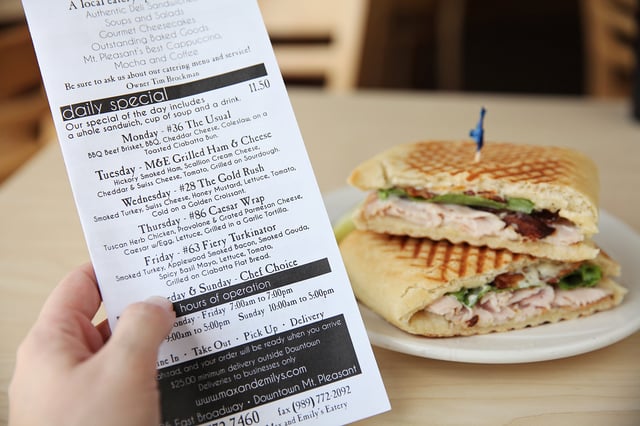 A local eatery
Authentic Deli Sandwiches
Soups and Salads
Gourmet Cheesecakes
Outstanding Baked Goods
Mt. Pleasant's Best Cappuccino,
Mocha and Coffee
Be sure to ask us about our catering menu and service!
Owner Tim Brockman
daily special 11.50
Our special of the day includes
a whole sandwich, cup of soup and a drink.
Monday - #36 The Usual
BBQ Beef Brisket, BBQ, Cheddar Cheese, Coleslaw on a
Toasted Ciabatta Bun.
Tuesday - M&E Grilled Ham & Cheese
Hickory Smoked Ham, Scallion Cream Cheese,
Cheddar & Swiss Cheese, Tomato, Grilled on Sourdough.
Wednesday - #28 The Gold Rush
Smoked Turkey, Swiss Cheese, Honey Mustard, Lettuce, Tomato,
Cold on a Golden Croissant.
Thursday - #86 Caesar Wrap
Tuscan Herb Chicken, Provolone & Grated Parmesan Cheese,
Caesar w/Egg, Lettuce, Grilled in a Garlic Tortilla.
Friday - #63 Fiery Turkinator
Smoked Turkey, Applewood Smoked Bacon, Smoked Gouda,
Spicy Basil Mayo, Lettuce, Tomato,
Grilled on Ciabatta Flat Bread.
& Sunday - Chef Choice
hours of operation
Friday 7:00am to 7:00pm
9:00am to 5:00pm Sunday 10:00am to 5:00pm
Dine In · Take Out · Pick Up · Delivery
and your order will be ready when you arrive
$25.00 minimum delivery outside Downtown
Deliveries to businesses only
www.maxandemilys.com
East Broadway · Downtown Mt. Pleasant
7460 fax (989) 772-2092
Max and Emily's Eatery